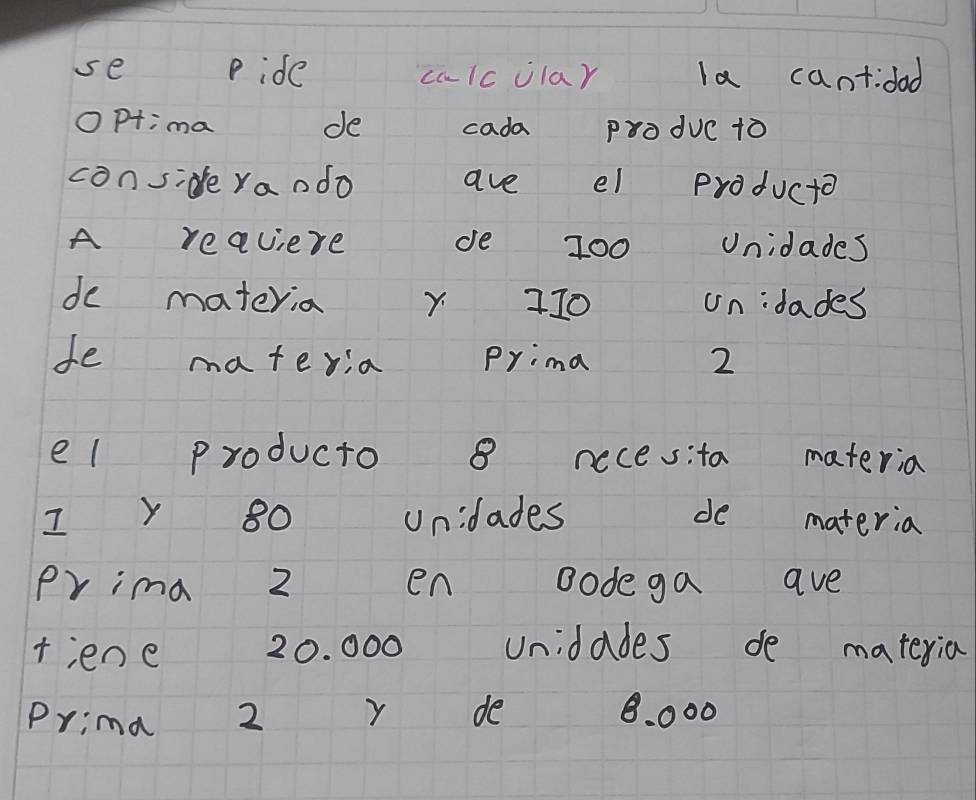 se pide calcular la cantidad
optima de cada producto
considerando que el producto
A requiere de 100 unidades
de materia y 110 unidades
de materia prima 2
el producto 8 necesita materia
1 y 80 unidades de materia
prima 2 en Bodega que
tiene 20.000 unidades de materia
prima 2 y de 8.000